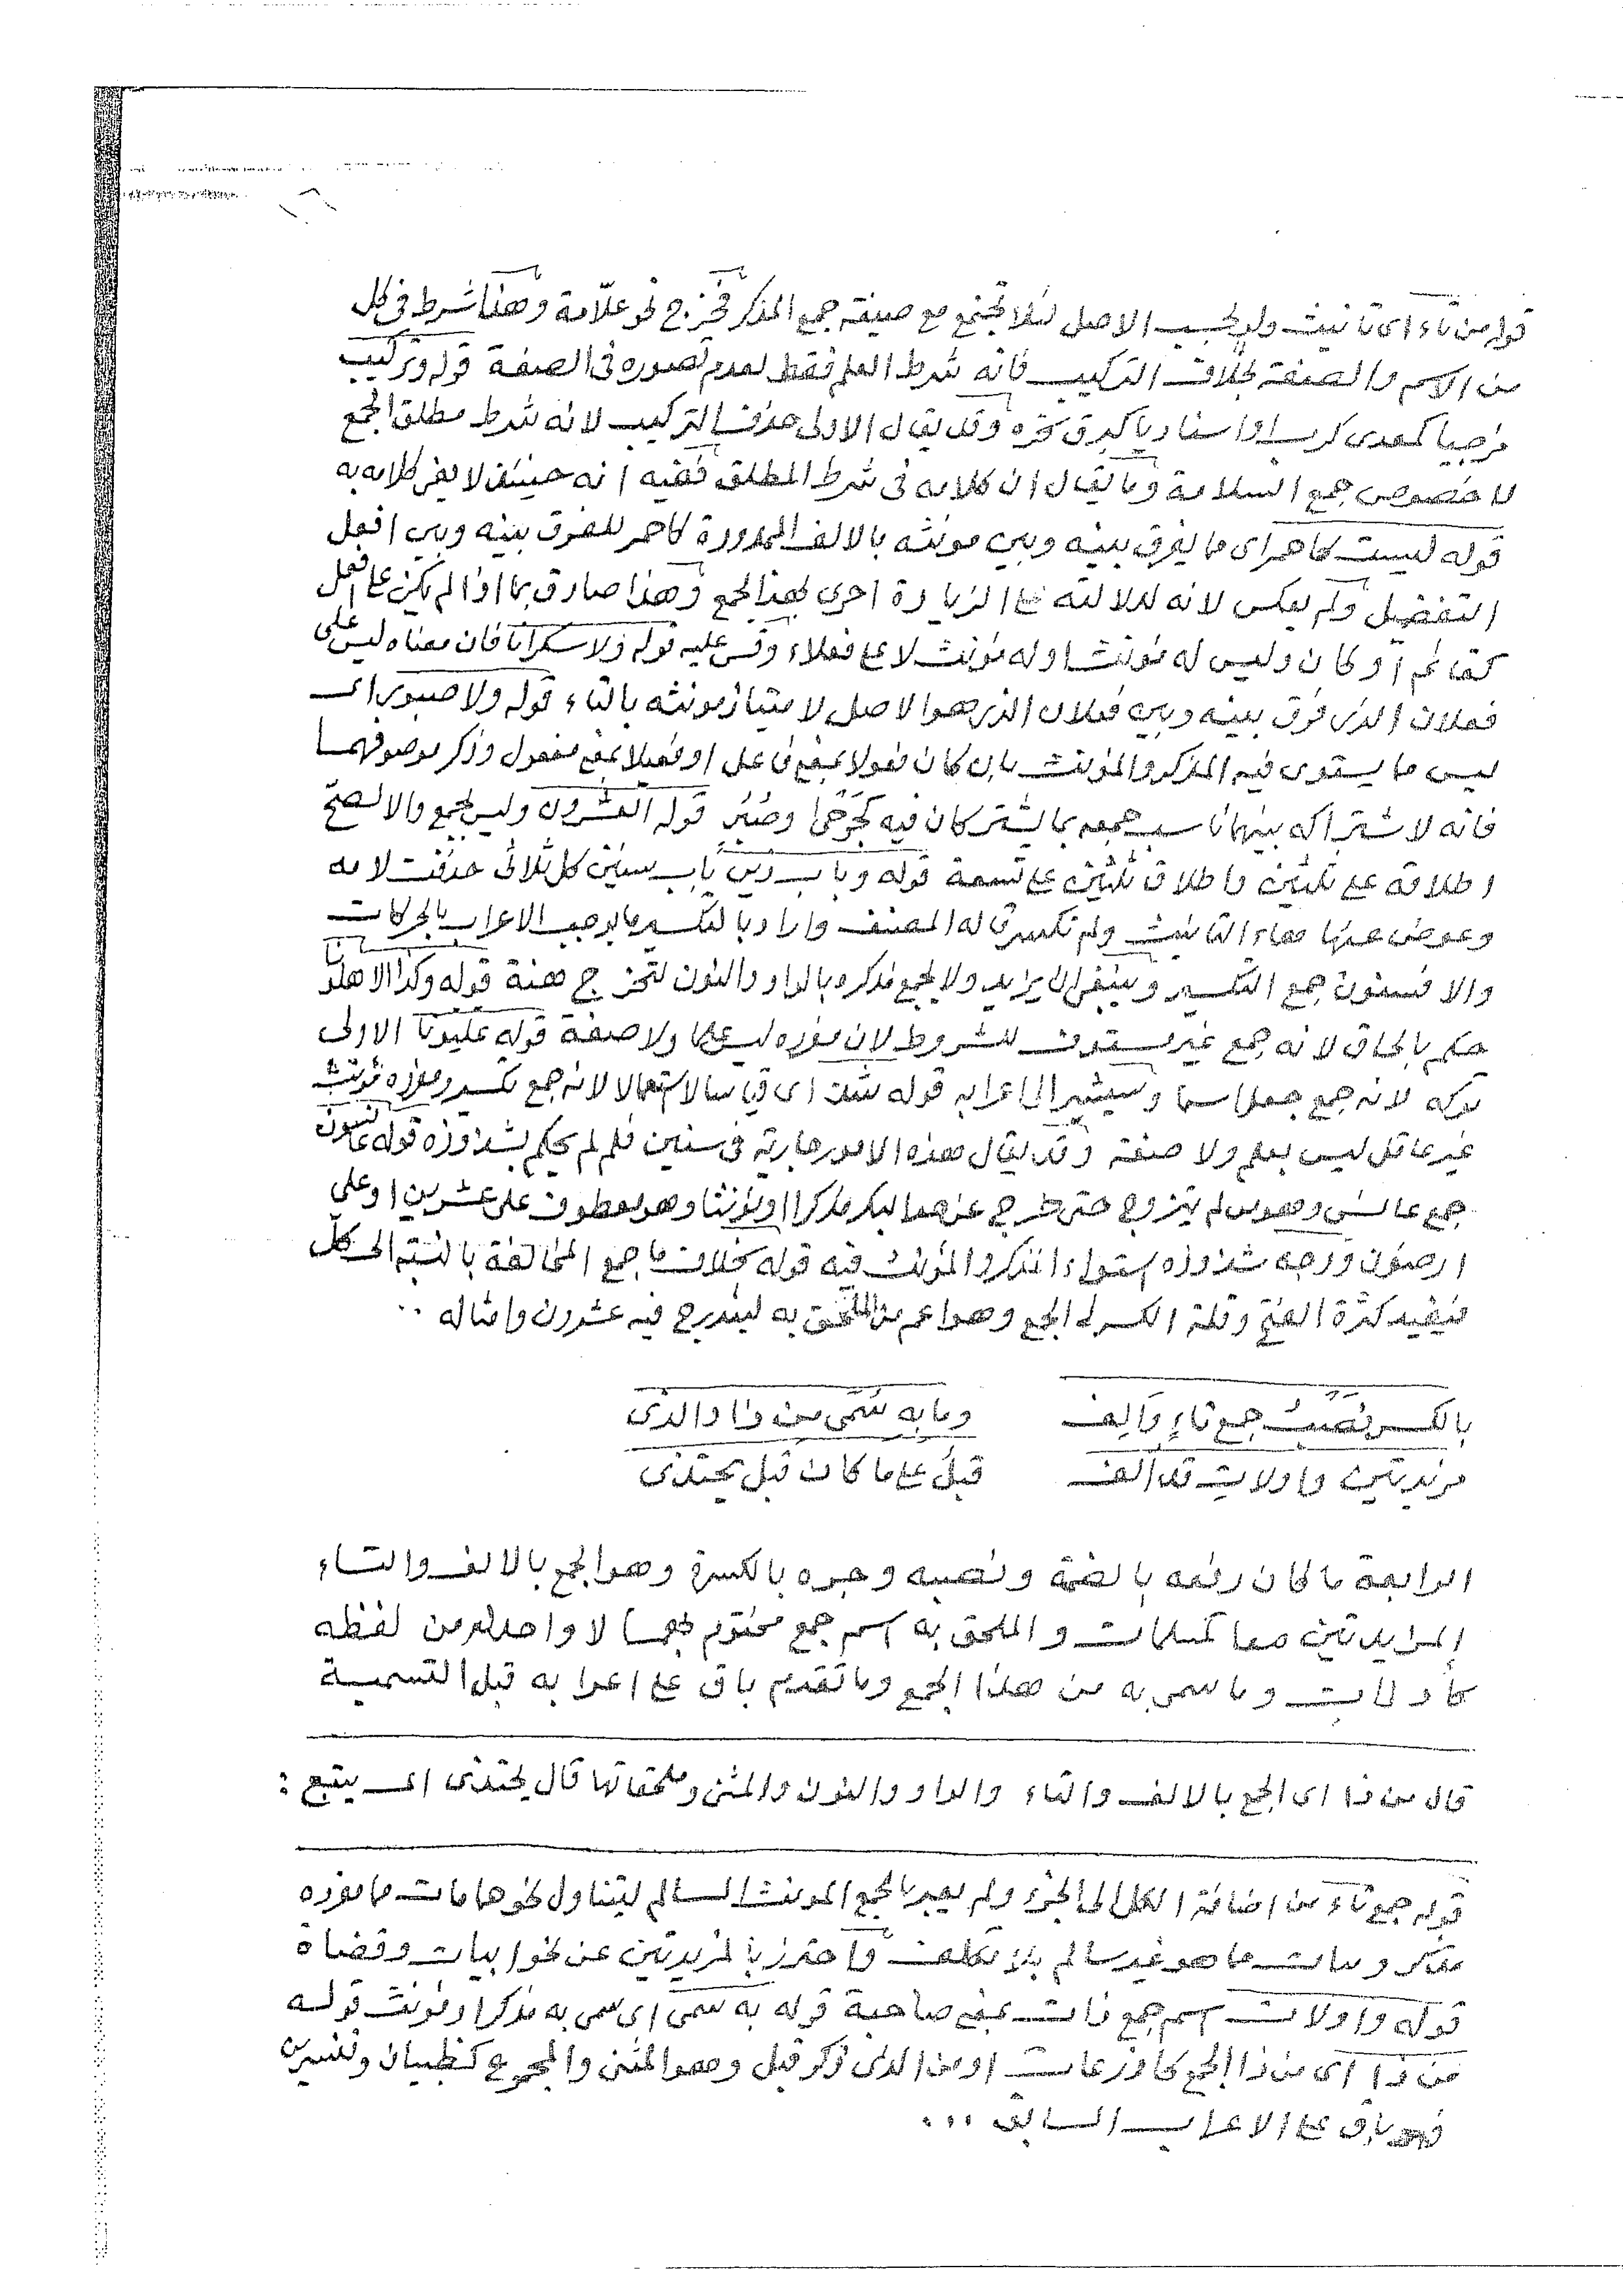 قوله من تاء اى تانيث ولو بحسب الاصل لئلا تجتمع مع صيغة جمع المذكر فخرج نحو علّامة وهذا شرط فى كل
من الاسم والصفة بخلاف التركيب فانه شرط العلم فقط لعدم تصوره فى الصفة قوله وتركيب
مزجيا كمعدى كرب او اسناديا كبرق نحره وقد يقال الاولى حذف التركيب لانه شرط مطلق الجمع
لا خصوص جمع السلامة وما يقال ان كلامه فى شرط المطلق ففيه انه حينئذ لا يفى كلامه به
قوله ليست كاحمر اى ما يفرق بينه وبين مونثه بالالف الممدودة كاحمر للفرق بينه وبين افعل
التفضيل ولم يعكس لانه لدلالته على الزيادة احرى بهذا الجمع وهذا صادق بما اذا لم يكن على افعل
كقائم او كان وليس له مؤنث او له مؤنث لا على فعلاء وقس عليه قوله ولا سكرانا فان معناه ليس على
فعلان الذى فرق بينه وبين فعلان الذى هو الاصل لامتياز مونثه بالتاء قوله ولا صبور اى
ليس ما يستوى فيه المذكر والمؤنث بان كان فعولا بمعنى فاعل او فعيلا بمعنى مفعول وذكر موصوفهما
فانه لاشتراكه بينهما ناسب جمعه بما يشتركان فيه كجرحى وصبر قوله العشرون وليس بجمع والا لصح
اطلاقه على ثلثين واطلاق ثلثين على تسعة قوله وباب ذين باب سنين كل ثلاثى حذفت لامه
وعوض عنها هاء التانيث ولم تكسر قاله المصنف واراد بالتكسير ما يوجب الاعراب بالحركات
والا فسنون جمع التكسير وينبغى ان يزيد ولا يجمع مذكره بالواو والنون لتخرج هنة قوله وكذا الاهلونا
حكم بالحاق لانه جمع غير مستوف للشروط لان مفرده ليس علما ولا صفة قوله عليونا الاولى
تركه لانه جمع جعل اسما وسيشير الى اعرابه قوله شذت اى قياسا لا استعمالا لانه جمع تكسير ومفرده مؤنث
غير عاقل ليس بعلم ولا صفة وقد يقال هذه الامور جارية فى سنين فلم لم يحكم بشذوذه قوله عانسون
جمع عانس وهو من لم يتزوج حتى خرج عن حد البكر مذكرا او مؤنثا وهو معطوف على عشرين او على
ارضون ووجه شذوذه استواء المذكر والمؤنث فيه قوله بخلاف ما جمع المخالفة بالنسبة الى كل
فيفيد كثرة الفتح وقلة الكسر فى الجمع وهو اعم من الملحق به ليندرج فيه عشرون وامثاله ..
بالكسر نصب جمع تاء والف وما به سمى من ذا والذى
مزيدتين واولات قد الف قبل على ما كان قبل يحتذى
الرابعة ما كان رفعه بالضمة ونصبه وجره بالكسرة وهو الجمع بالالف والتاء
المزايدتين معا كمسلمات والملحق به اسم جمع مختوم بهما لا واحد له من لفظه
كأولات وما سمى به من هذا الجمع وما تقدم باق على اعرابه قبل التسمية
قال من ذا اى الجمع بالالف والتاء والواو والنون والمثنى وملحقاتها قال يحتذى اى يتبع :
قوله جمع تاء من اضافة الكل الى الجزء ولم يعبر بالجمع المونث السالم ليتناول نحو حمامات مما مفرده
مذكر وبنات مما هو غير سالم بلا تكلف واحترز بالمزيدتين عن نحو ابيات وقضاة
قوله واولات اسم جمع ذات بمعنى صاحبة قوله به سمى اى سمى به مذكرا او مؤنث قوله
من ذا اى من ذا الجمع كاذرعات او من الذى ذكر قبل وهو المثنى والمجموع كظبيان وقنسرين
فهو باق على الاعراب السابق ...